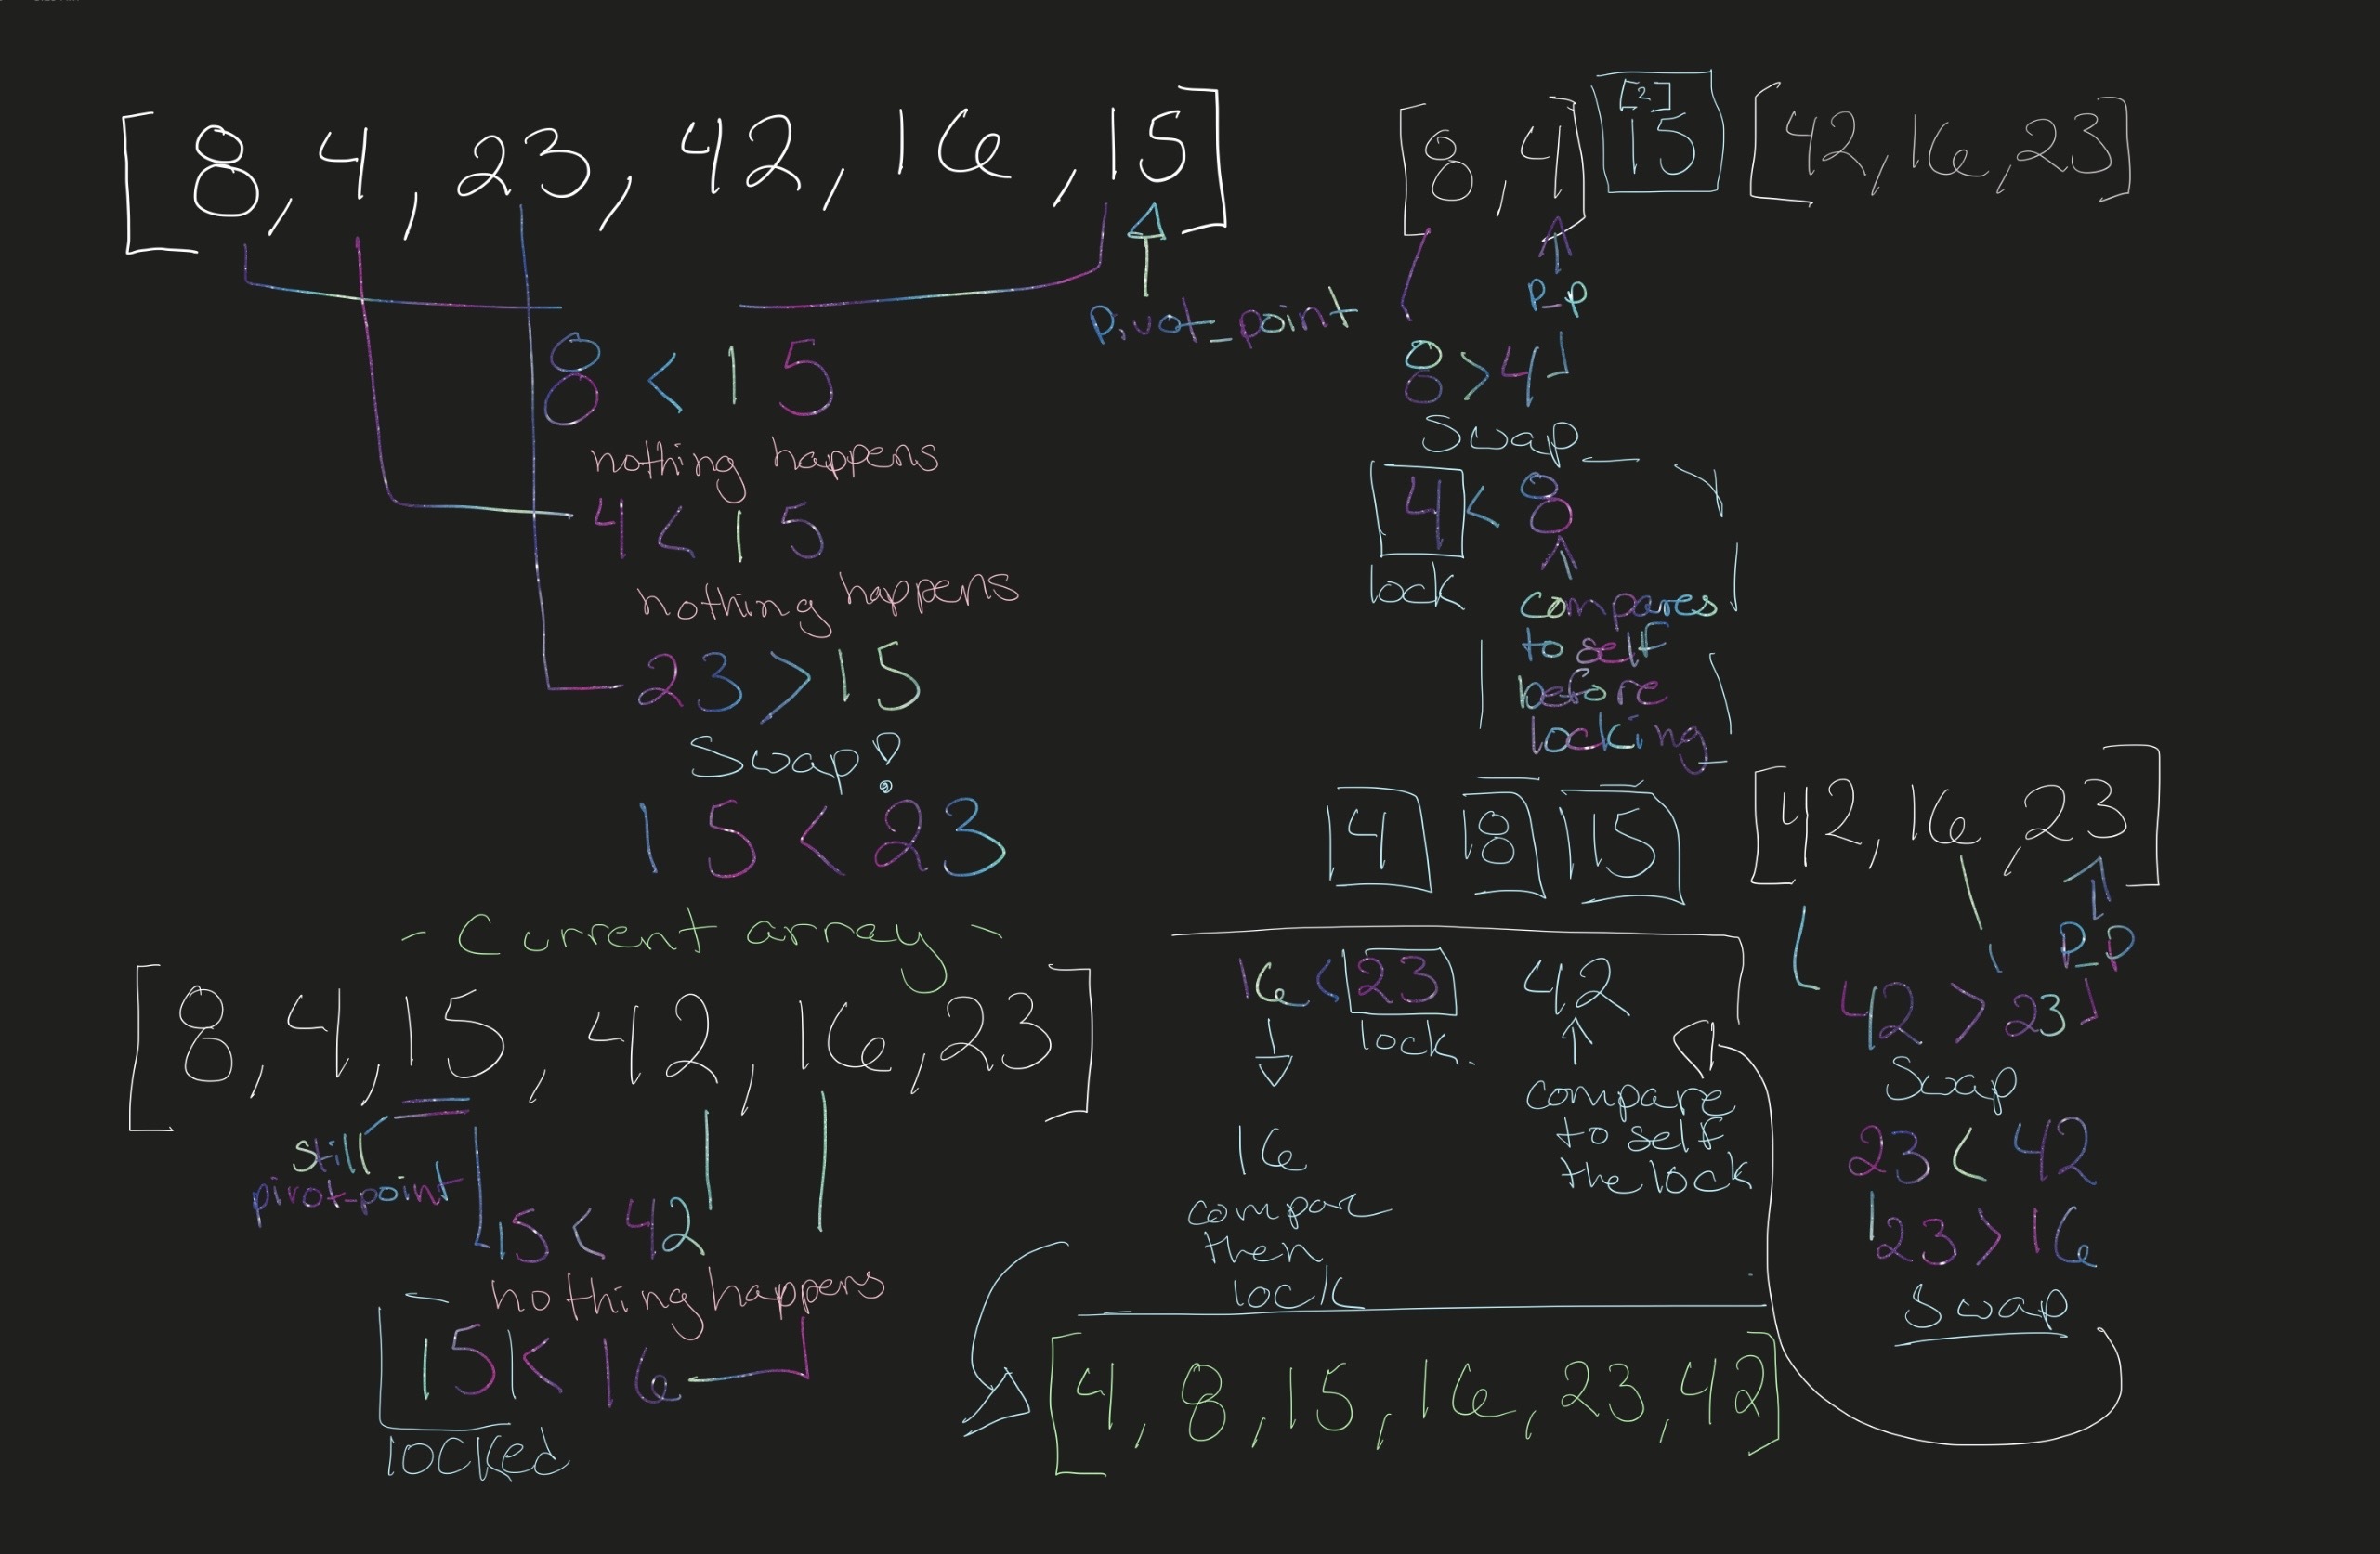 [8, 4, 23, 42, 16, 15]
pivot_point
8 < 15
nothing happens
4 < 15
nothing happens
23 > 15
Swap!
15 < 23
- Current array -
[8, 4, 15, 42, 16, 23]
still
pivot-point
15 < 42
nothing happens
15 < 16
locked
[8, 4] [2] 15 [42, 16, 23]
P_P
8 > 4
Swap
4 < 8
lock
compares
to self
before
locking
4 8 15
[42, 16, 23]
P_P
42 > 23
Swap
23 < 42
23 > 16
Swap
16 < 23 42
lock
16
compare
then
lock
compare
to self
the lock
[4, 8, 15, 16, 23, 42]